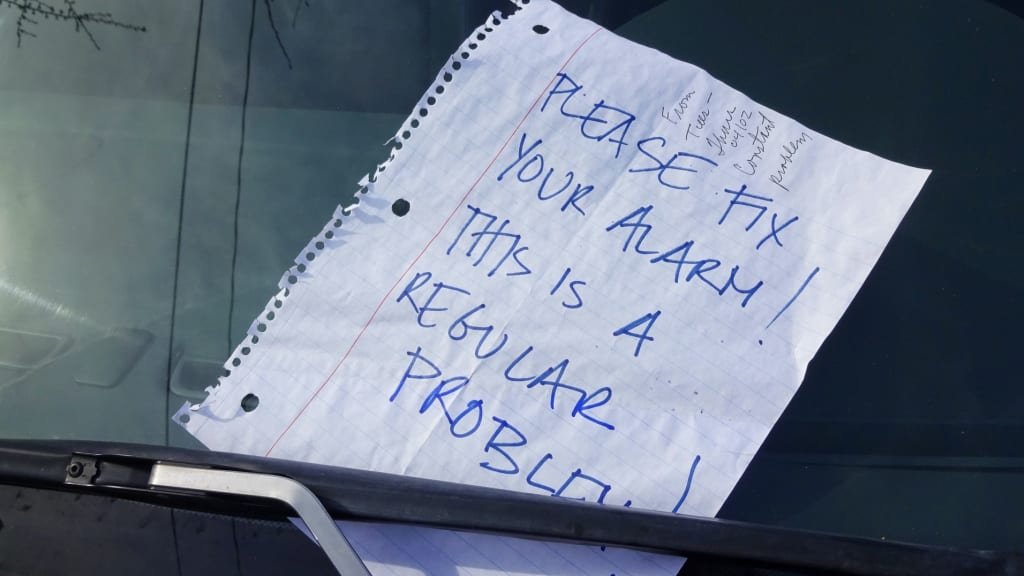 PLEASE FIX
YOUR ALARM!
THIS IS A
REGULAR
PROBLEM!
From
Tues -
Thurs
04/02
Constant
problem